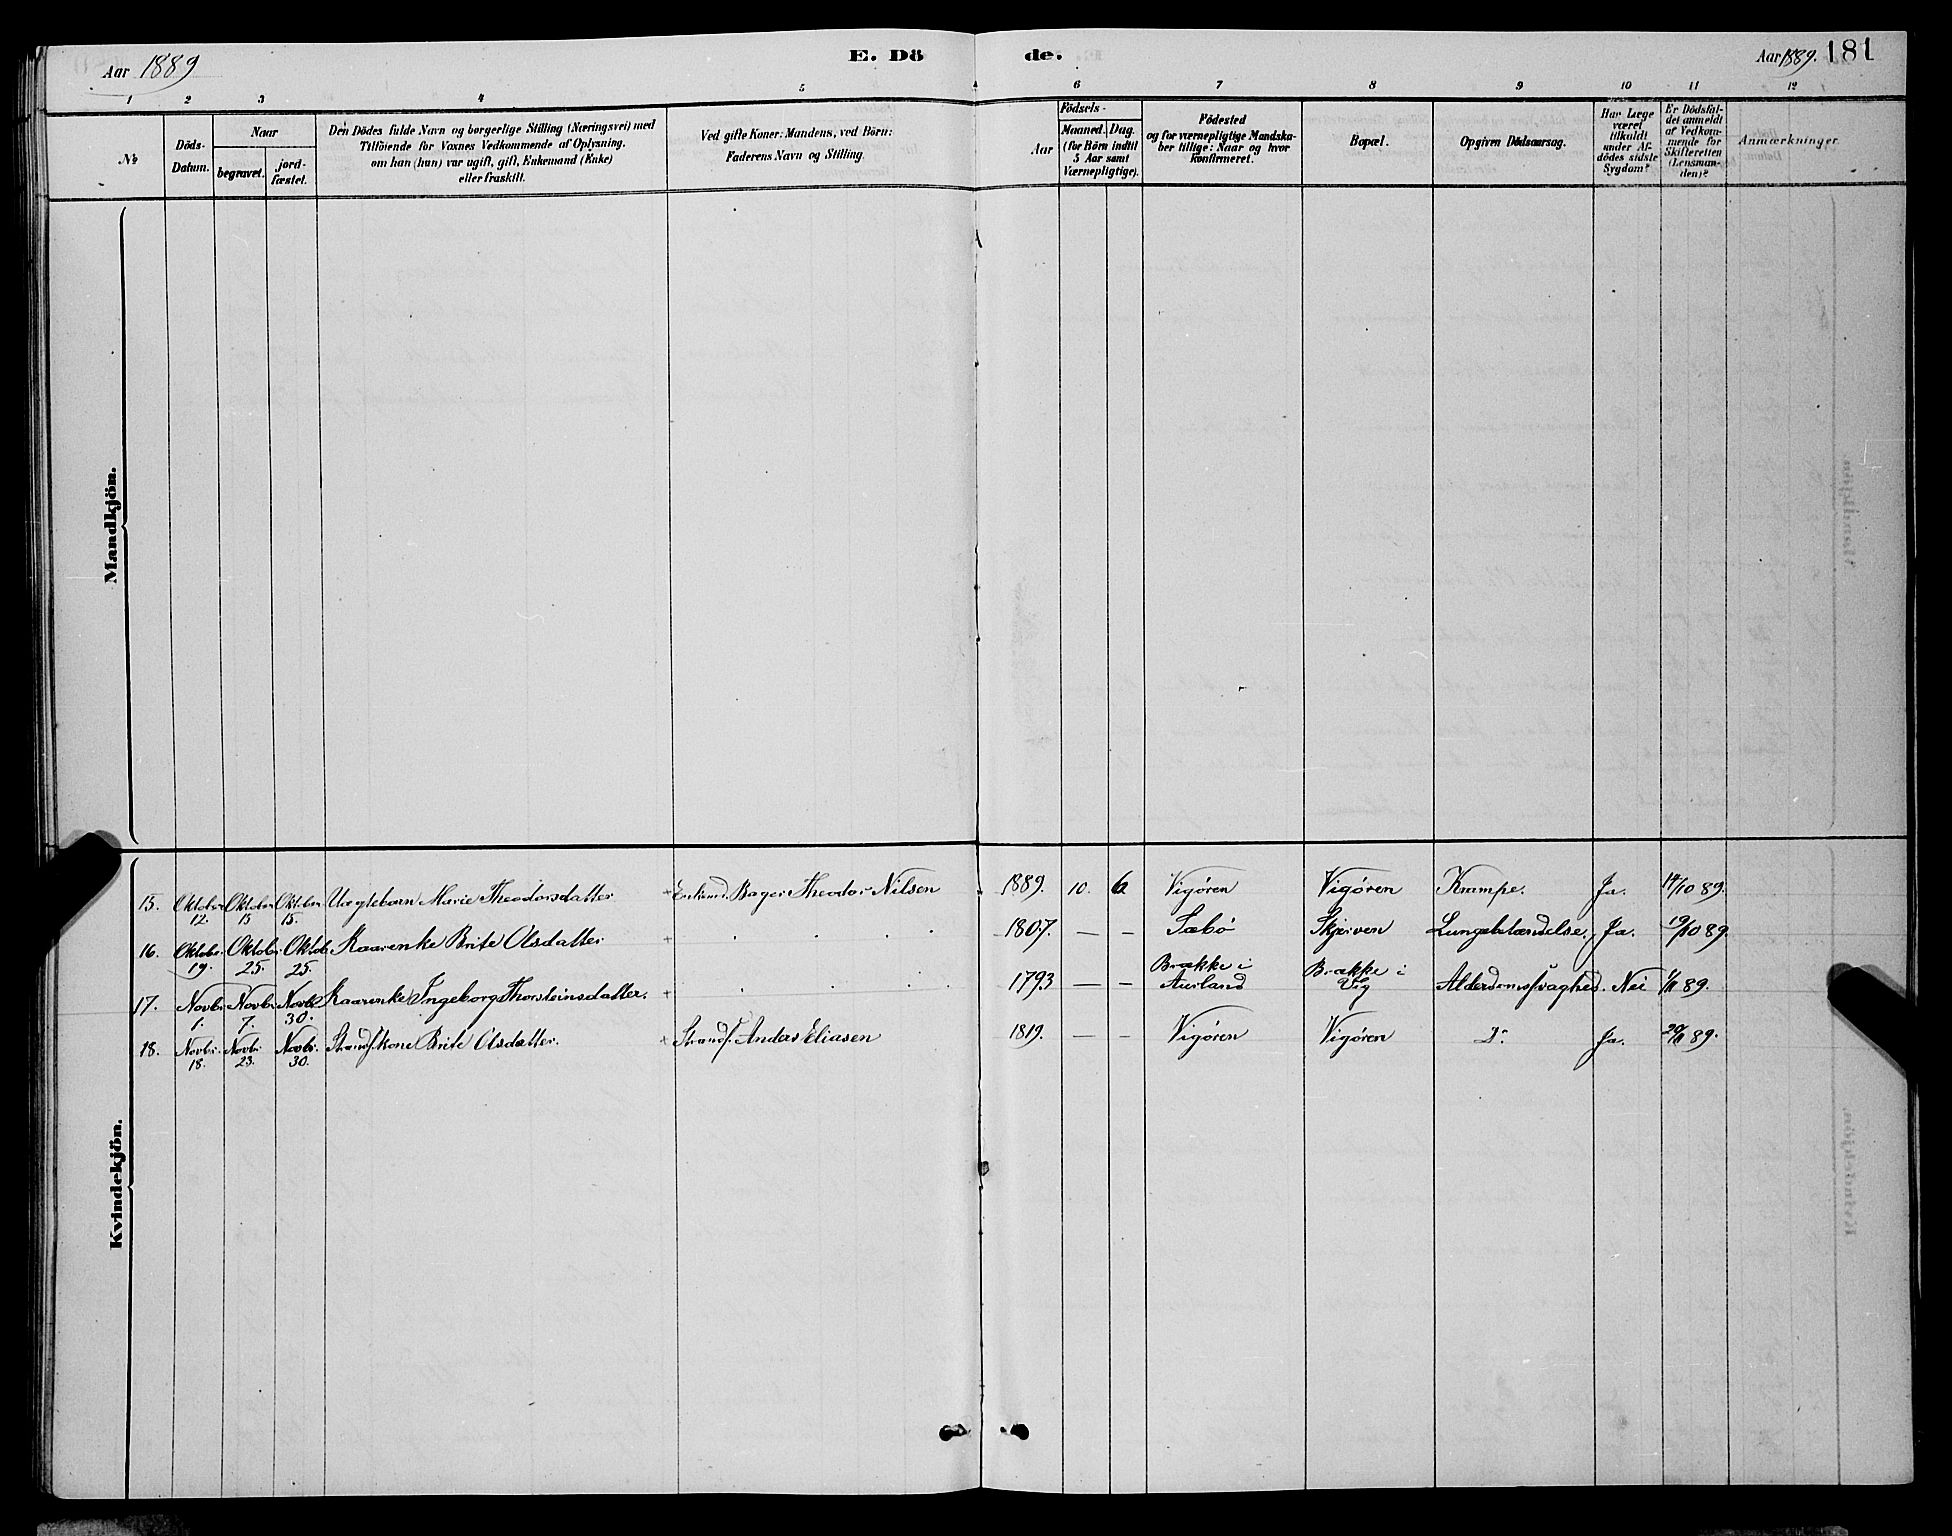 Aar 1889
E. Dö
de.
Aar 1889. 181
1 2 3 4 5 6 7 8 9 10 11 12
No
Döds-
Datum.
Naar
begravet.
jord-
fæstet.
Den Dödes fulde Navn og borgerlige Stilling (Næringsvei) med
Tilföiende for Voxnes Vedkommende af Oplysning,
om han (hun) var ugift, gift, Enkemand (Enke)
eller fraskilt.
Ved gifte Koner: Mandens, ved Börn:
Faderens Navn og Stilling.
Födsels-
Aar
Maaned. Dag.
(for Börn indtil
5 Aar samt
Værnepligtige).
Födested
og for værnepligtige Mandska-
ber tillige: Naar og hvor
konfirmeret.
Bopæl.
Opgiven Dödsaarsag.
Har Læge
været
tilkaldt
under Af-
dödes sidste
Sygdom?
Er Dödsfal-
det anmeldt
af Vedkom-
mende for
Skifteretten
(Lensman-
den)?
Anmærkninger.
Mandkjön.
Kvindekjön.
15. Oktober 12. Oktober 15 Oktober 15. Marie Theodorsdatter Bager Theodor Nilsen 1889. 10. 6 Vigören Vigören Krampe. Ja. 14/10 89.
16. Oktober 19. Oktober 25. Oktob. 25. Kaarenke Brite Olsdatter 1807. — — Sæbö Skjerven Lungebetændelse. Ja. 19/10 89.
17. Novbr. 1. Novbr. 7. Novbr 30. Kaarenke Ingeborg Thorsteinsdatter. 1793 — — Brække i Aurland Brække i Vig Alderdomssvaghed. Nei 1/11 89.
18. Novbr. 18. Novbr 23. Novbr. 30. Strands.kone Brite Olsdatter. Strands. Anders Eliasen 1819. — — Vigören Vigören Do Ja. 20/11 89.